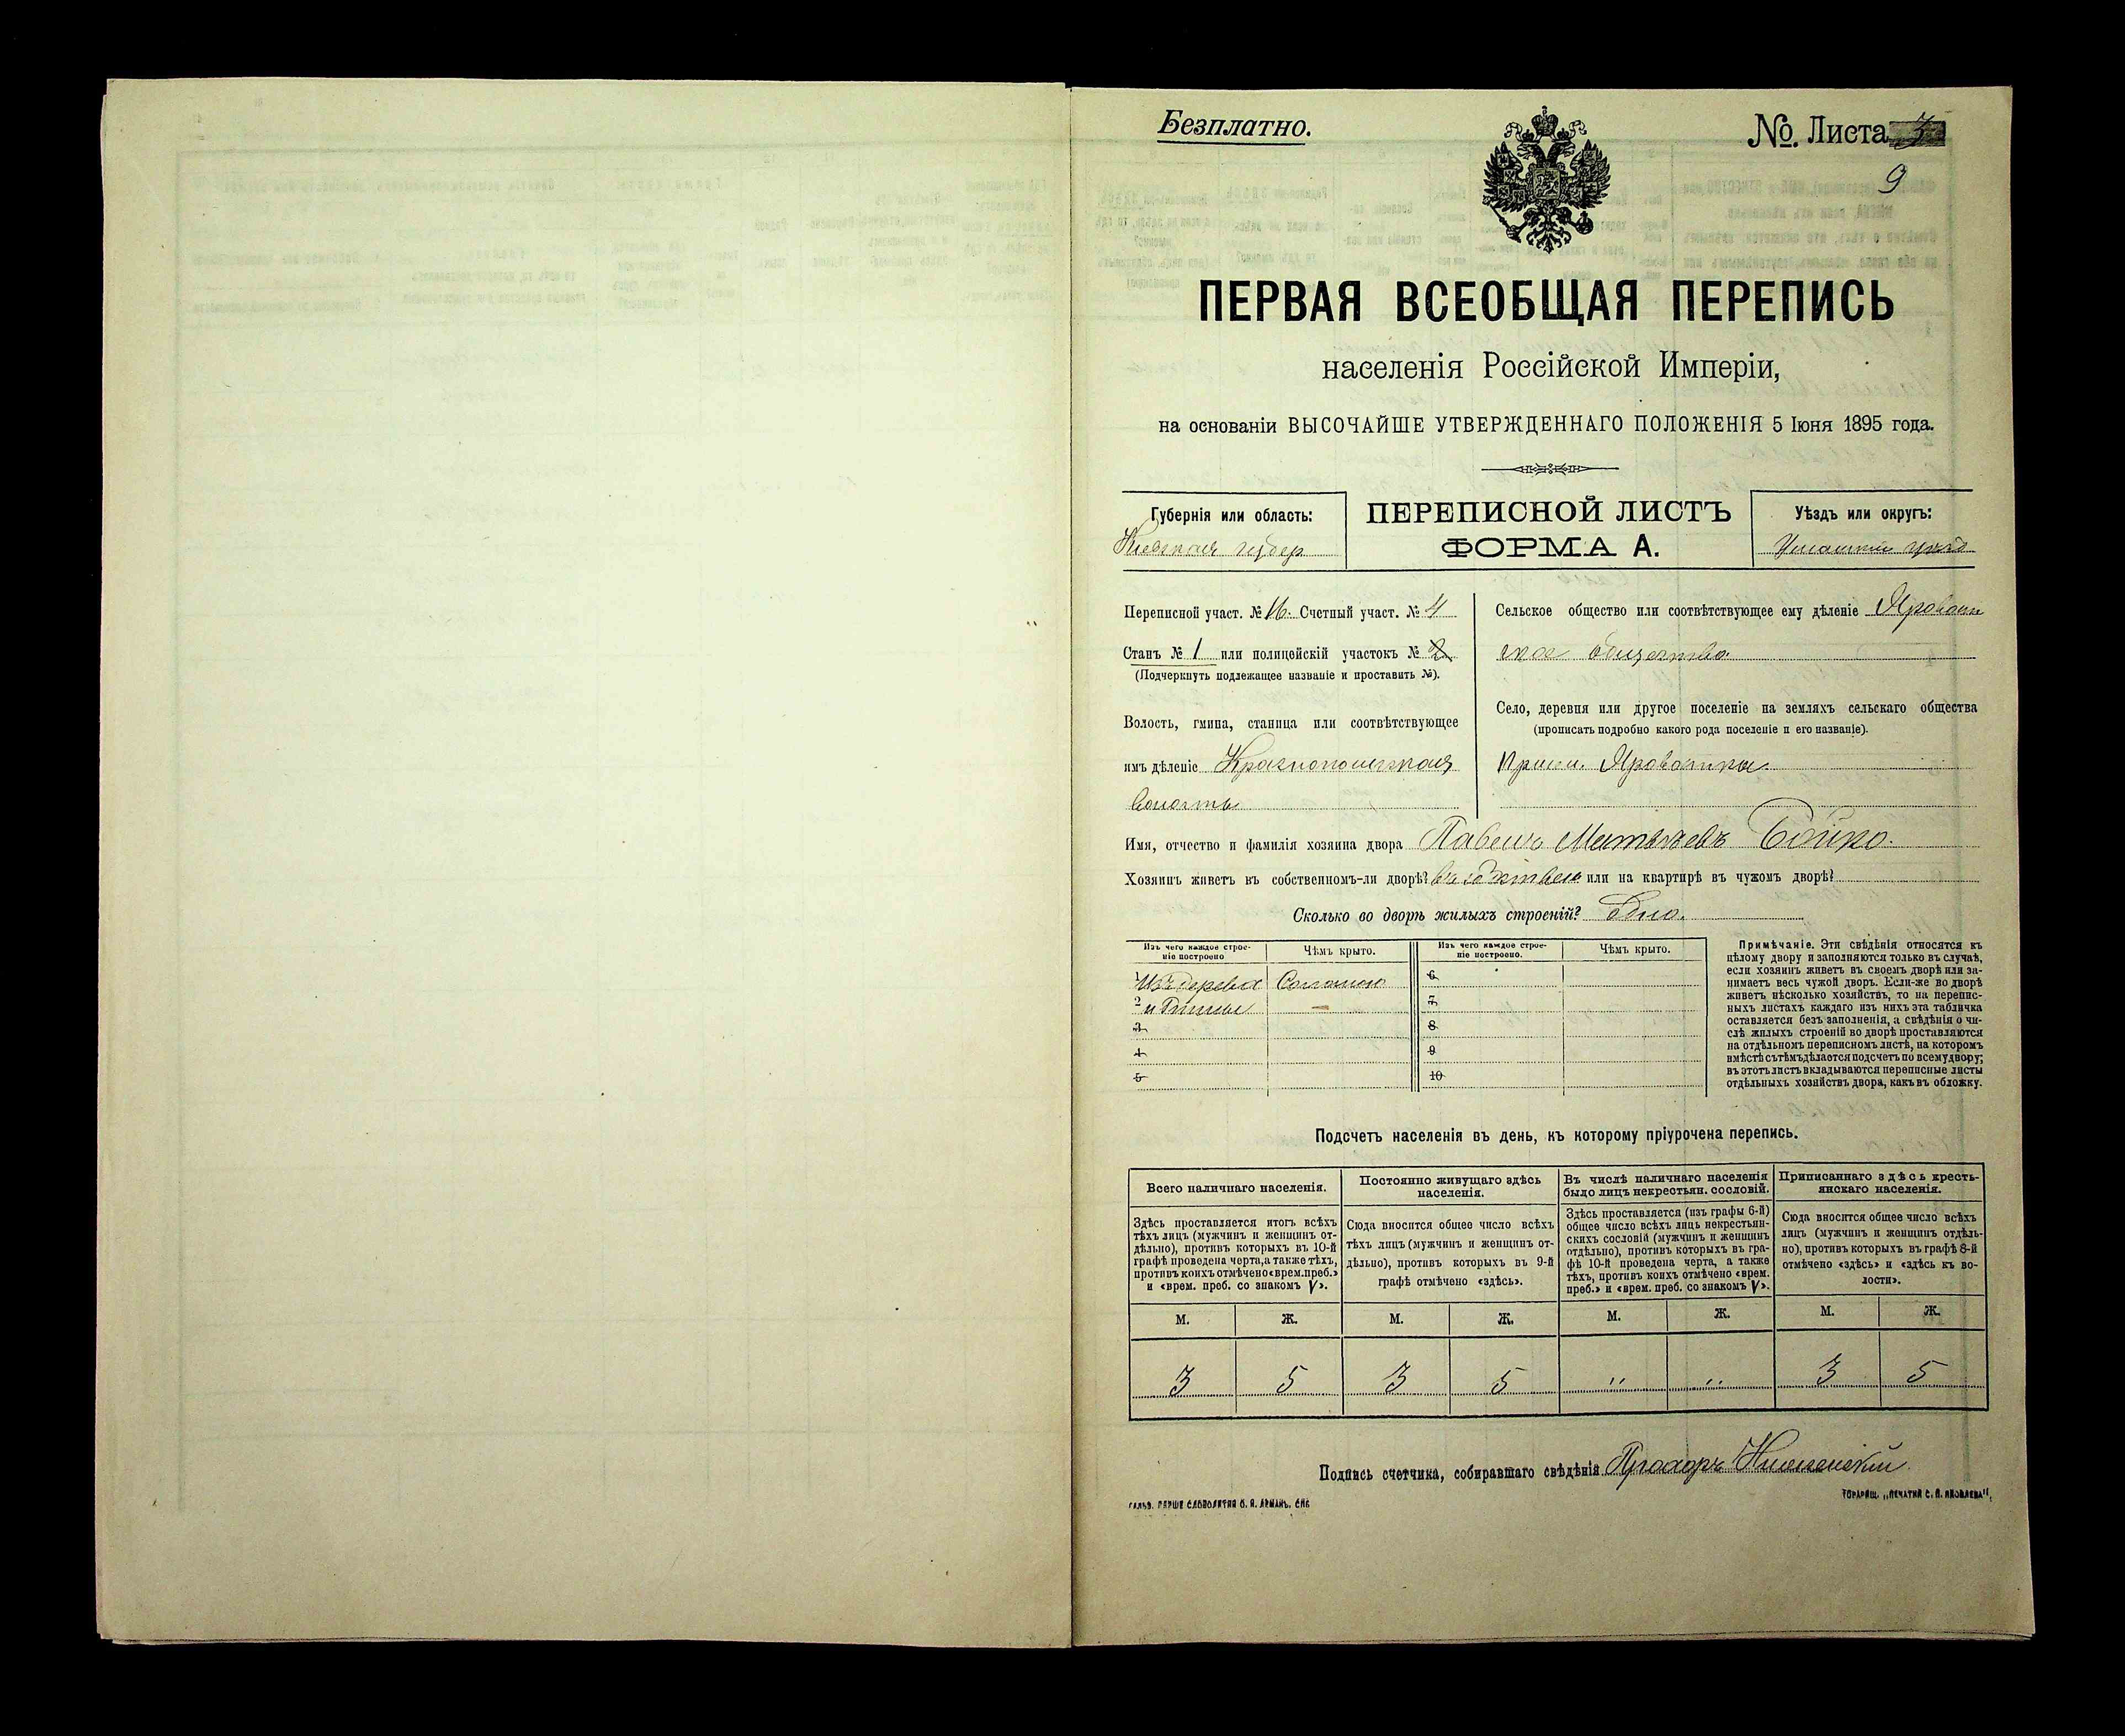 Безплатно.
№. Листа 3
9
ПЕРВАЯ ВСЕОБЩАЯ ПЕРЕПИСЬ
населенія Россійской Имперіи,
на основаніи ВЫСОЧАЙШЕ УТВЕРЖДЕННАГО ПОЛОЖЕНІЯ 5 Іюня 1895 года.
Губернія или область:
Кіевская губер
ПЕРЕПИСНОЙ ЛИСТЪ
ФОРМА А.
Уѣздъ или округъ:
Уманскій уѣзд
Переписной участ. № 16. Счетный участ. № 4
Станъ № 1 или полицейскій участокъ № 2
(Подчеркнуть подлежащее названіе и проставить №).
Волость, гмина, станица или соотвѣтствующее
имъ дѣленіе Краснопольская
Волость
Сельское общество или соотвѣтствующее ему дѣленіе Яроватн
ское общество
Село, деревня или другое поселеніе на земляхъ сельскаго общества
(прописать подробно какого рода поселеніе и его названіе).
Яроватка
Имя, отчество и фамилія хозяина двора Павелъ Матвѣевъ Бойко.
Хозяинъ живетъ въ собственномъ-ли дворѣ? или на квартирѣ въ чужомъ дворѣ?
Сколько во дворѣ жилыхъ строеній? Одно.
Изъ чего каждое строе-
ніе построено
Чѣмъ крыто.
Изъ чего каждое строе-
ніе построено.
Чѣмъ крыто.
1 Изъ дерева Соломою 6
2 и Глины — 7
3 8
4 9
5 10
Примѣчаніе. Эти свѣдѣнія относятся къ
цѣлому двору и заполняются только въ случаѣ,
если хозяинъ живетъ въ своемъ дворѣ или за-
нимаетъ весь чужой дворъ. Если-же во дворѣ
живетъ нѣсколько хозяйствъ, то на перепис-
ныхъ листахъ каждаго изъ нихъ эта табличка
оставляется безъ заполненія, а свѣдѣнія о чи-
слѣ жилыхъ строеній во дворѣ проставляются
на отдѣльномъ переписномъ листѣ, на которомъ
вмѣстѣ съ тѣмъ дѣлается подсчетъ по всему двору;
въ этотъ листъ вкладываются переписные листы
отдѣльныхъ хозяйствъ двора, какъ въ обложку.
Подсчетъ населенія въ день, къ которому пріурочена перепись.
Всего наличнаго населенія.
Постоянно живущаго здѣсь
населенія.
Въ числѣ наличнаго населенія
было лицъ некрестьян. сословій.
Приписаннаго здѣсь кресть-
янскаго населенія.
Здѣсь проставляется итогъ всѣхъ
тѣхъ лицъ (мужчинъ и женщинъ от-
дѣльно), противъ которыхъ въ 10-й
графѣ проведена черта, а также тѣхъ,
противъ коихъ отмѣчено «врем. преб.»
и «врем. преб. со знакомъ V».
Сюда вносится общее число всѣхъ
тѣхъ лицъ (мужчинъ и женщинъ от-
дѣльно), противъ которыхъ въ 9-й
графѣ отмѣчено «здѣсь».
Здѣсь проставляется (изъ графы 6-й)
общее число всѣхъ лицъ некрестьян-
скихъ сословій (мужчинъ и женщинъ
отдѣльно), противъ которыхъ въ гра-
фѣ 10-й проведена черта, а также
тѣхъ, противъ коихъ отмѣчено «врем.
преб.» и «врем. преб. со знакомъ V».
Сюда вносится общее число всѣхъ
лицъ (мужчинъ и женщинъ отдѣль-
но), противъ которыхъ въ графѣ 8-й
отмѣчено «здѣсь» и «здѣсь къ во-
лости».
М. Ж. М. Ж. М. Ж. М. Ж.
3 5 3 5 " " 3 5
Подпись счетчика, собиравшаго свѣдѣнія
ТОВАРИЩ. „ПЕЧАТНЯ С. П. ЯКОВЛЕВА".